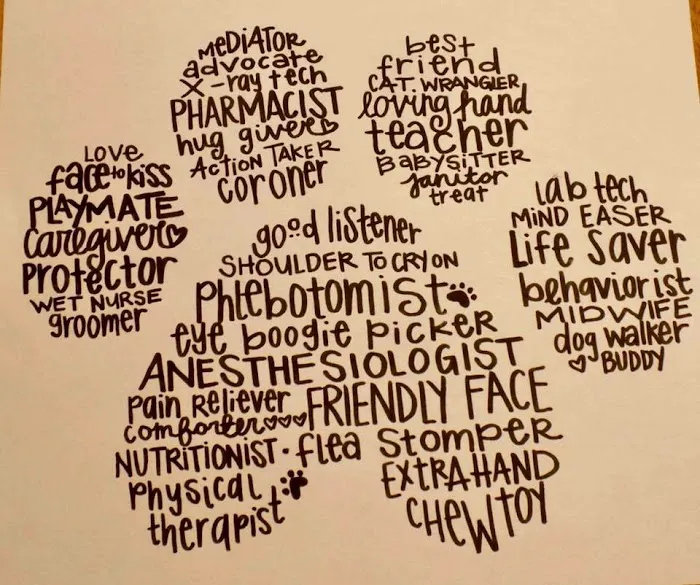 LOVE
face to kiss
PLAYMATE
Caregiver
Protector
WET NURSE
groomer
MeDiATOR
advocate
X-ray tech
PHARMACIST
hug giver
ACTION TAKER
coroner
best
friend
CAT WRANGLER
loving hand
teacher
BABYSITTER
janitor
treat
lab tech
MiND EASER
Life Saver
behaviorist
MIDWIFE
dog walker
BUDDY
good listener
SHOULDER TO CRY ON
Phlebotomist
eye boogie picker
ANESTHESIOLOGIST
Pain Reliever
comforter
FRIENDLY FACE
NUTRITIONIST · flea Stomper
Physical
therapist
EXTRA HAND
CHEW TOY